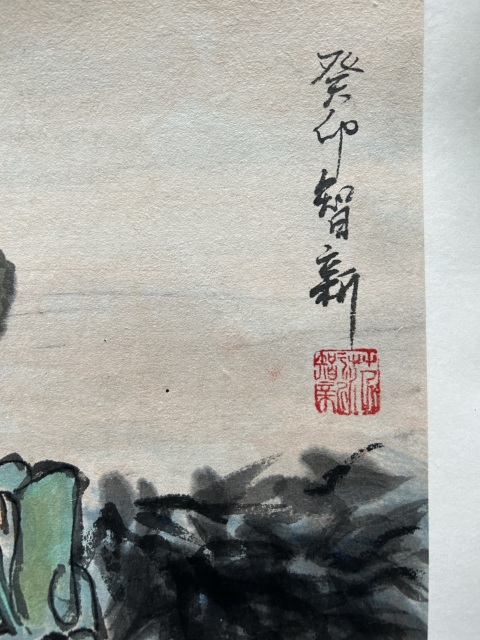 癸卯智新